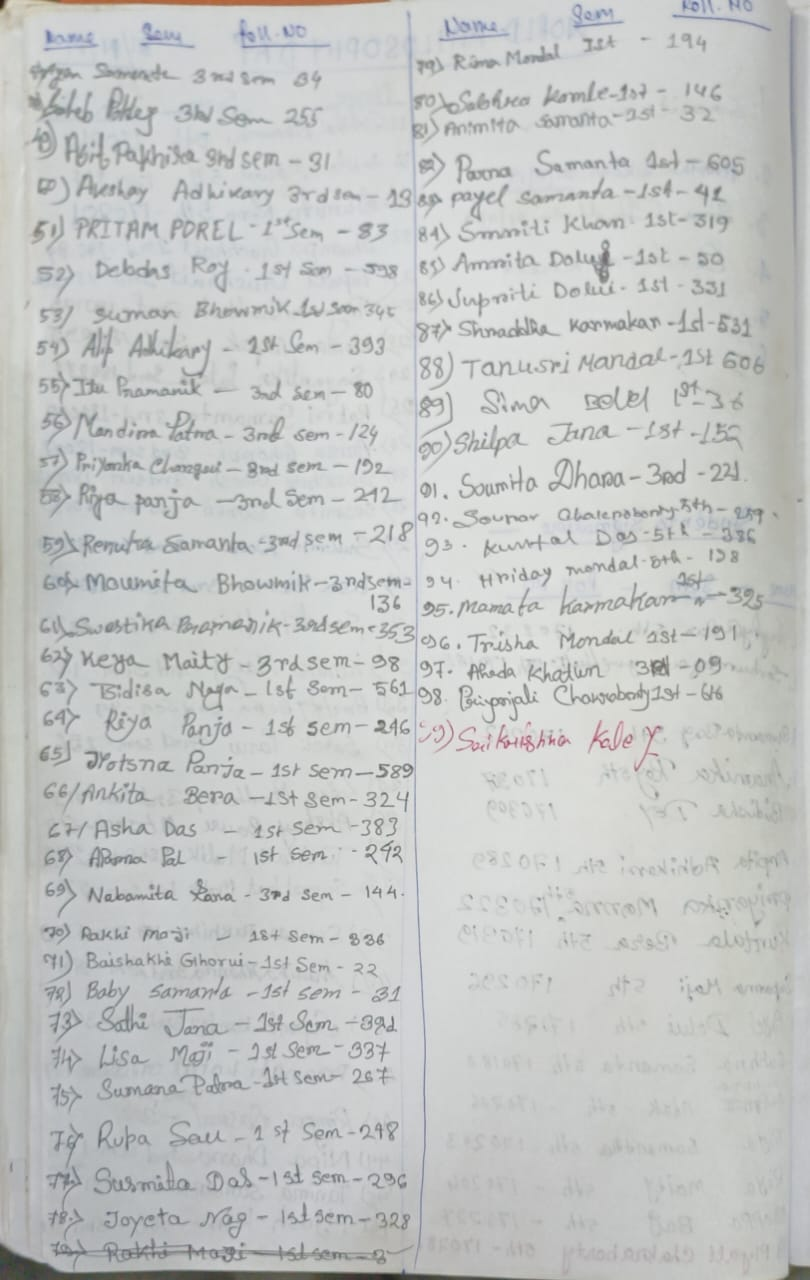 Name Sem Roll.NO
Samanta 3rd Sem 34
3rd Sem 255
49) Asif Pakhira 3rd sem - 31
50) Akshay Adhikary 3rd sem - 13
51) PRITAM POREL - 1st Sem - 83
52) Debdas Roy 1st Sem - 598
53) Suman Bhowmik 1st Sem 345
54) Alip Adhikary - 1st Sem - 393
55) Itu Pramanik - 3rd sem - 80
56) Mandira Patra - 3rd sem - 124
57) Priyanka - 3rd sem - 192
58) Riya panja - 3rd Sem - 212
59) Samanta - 3rd sem - 218
60) Moumita Bhowmik - 3rd sem -
136
61) Swastika Pramanik - 3rd sem - 353
62) Keya Maity - 3rd sem - 98
63) Bidisa Naya - 1st Sem - 561
64) Riya Panja - 1st sem - 246
65) Jyotsna Panja - 1st sem - 589
66/ Ankita Bera - 1st Sem - 324
67/ Asha Das - 1st Sem - 383
68) Aparna Pal - 1st Sem - 242
69) Nabamita - 3rd Sem - 144.
70) Rakhi Maji - 1st Sem - 336
71) Baishakhi Ghorui - 1st Sem - 22
72) Baby Samanta - 1st sem - 31
73) Sathi Jana - 1st Sem -
74) Lisa Maji - 1st Sem - 337
75) Sumana Patra - 1st Sem - 267
76) Rupa Sau - 1st Sem - 248
77) Susmita Das - 1st sem - 296
78) Joyeta Nag - 1st sem - 328
79) Rakhi Maji - 1st sem - 3
Name Sem Roll. NO
79) Rima Mondal Ist - 194
80) Komle - 1st - 146
81) Animita Samanta - 1st - 32
82) Parna Samanta 1st - 605
83) payel samanta - 1st - 42
84) Smriti Khan 1st - 319
85) Amrita Dolui - 1st - 50
86) Supriti Dolui - 1st - 331
87) Shraddha Karmakar - 1st - 531
88) Tanusri Mandal - 1st 606
89) Sima 1st - 36
90) Shilpa Jana - 1st - 152
91. Soumita Dhara - 3rd - 221.
92. 5th - 259.
93. Kuntal Das - 5th - 386
94. Hriday mondal - 5th - 128
95. Mamata Karmakar 1st - 325
96. Trisha Mondal 1st - 191
97. Ahada Khatun 3rd - 09
98. Priyanjali 1st - 616
99) Saikrishna Kaley